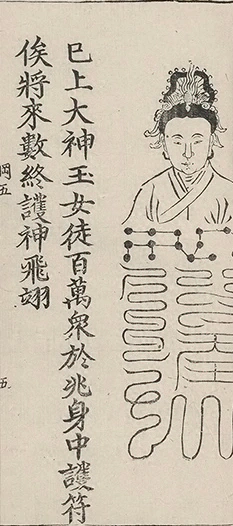 巳上大神玉女徒百萬衆於兆身中護符
俟將來數終護神飛翊
岡五
五